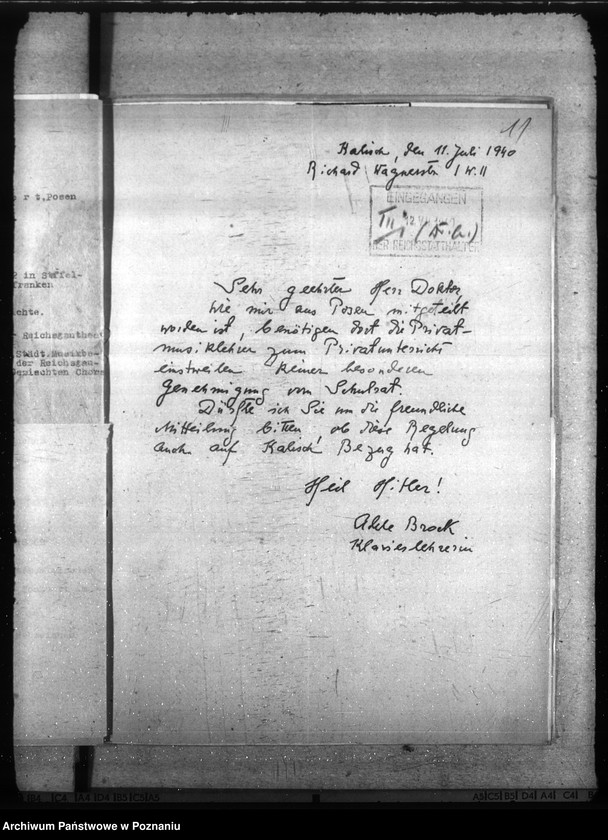 11
Kalisch, den 11. Juli 1940
Richard Wagnerstr. 1 W. 11
EINGEGANGEN
DER REICHSSTATTHALTER
r t, Posen
in Staffel-
franken
chte.
Reichsgauthea
Städt. Musikbe-
der Reichsgau-
Sehr geehrter Herr Doktor,
wie mir aus Posen mitgeteilt
worden ist, benötigen dort die Privat-
musiklehrer zum Privatunterricht
einstweilen keiner besonderen
Genehmigung vom Schulrat.
Dürfte ich Sie um die freundliche
Mitteilung bitten, ob diese Regelung
auch auf Kalisch Bezug hat.
Heil Hitler!
Brock
Klavierlehrerin
Archiwum Państwowe w Poznaniu